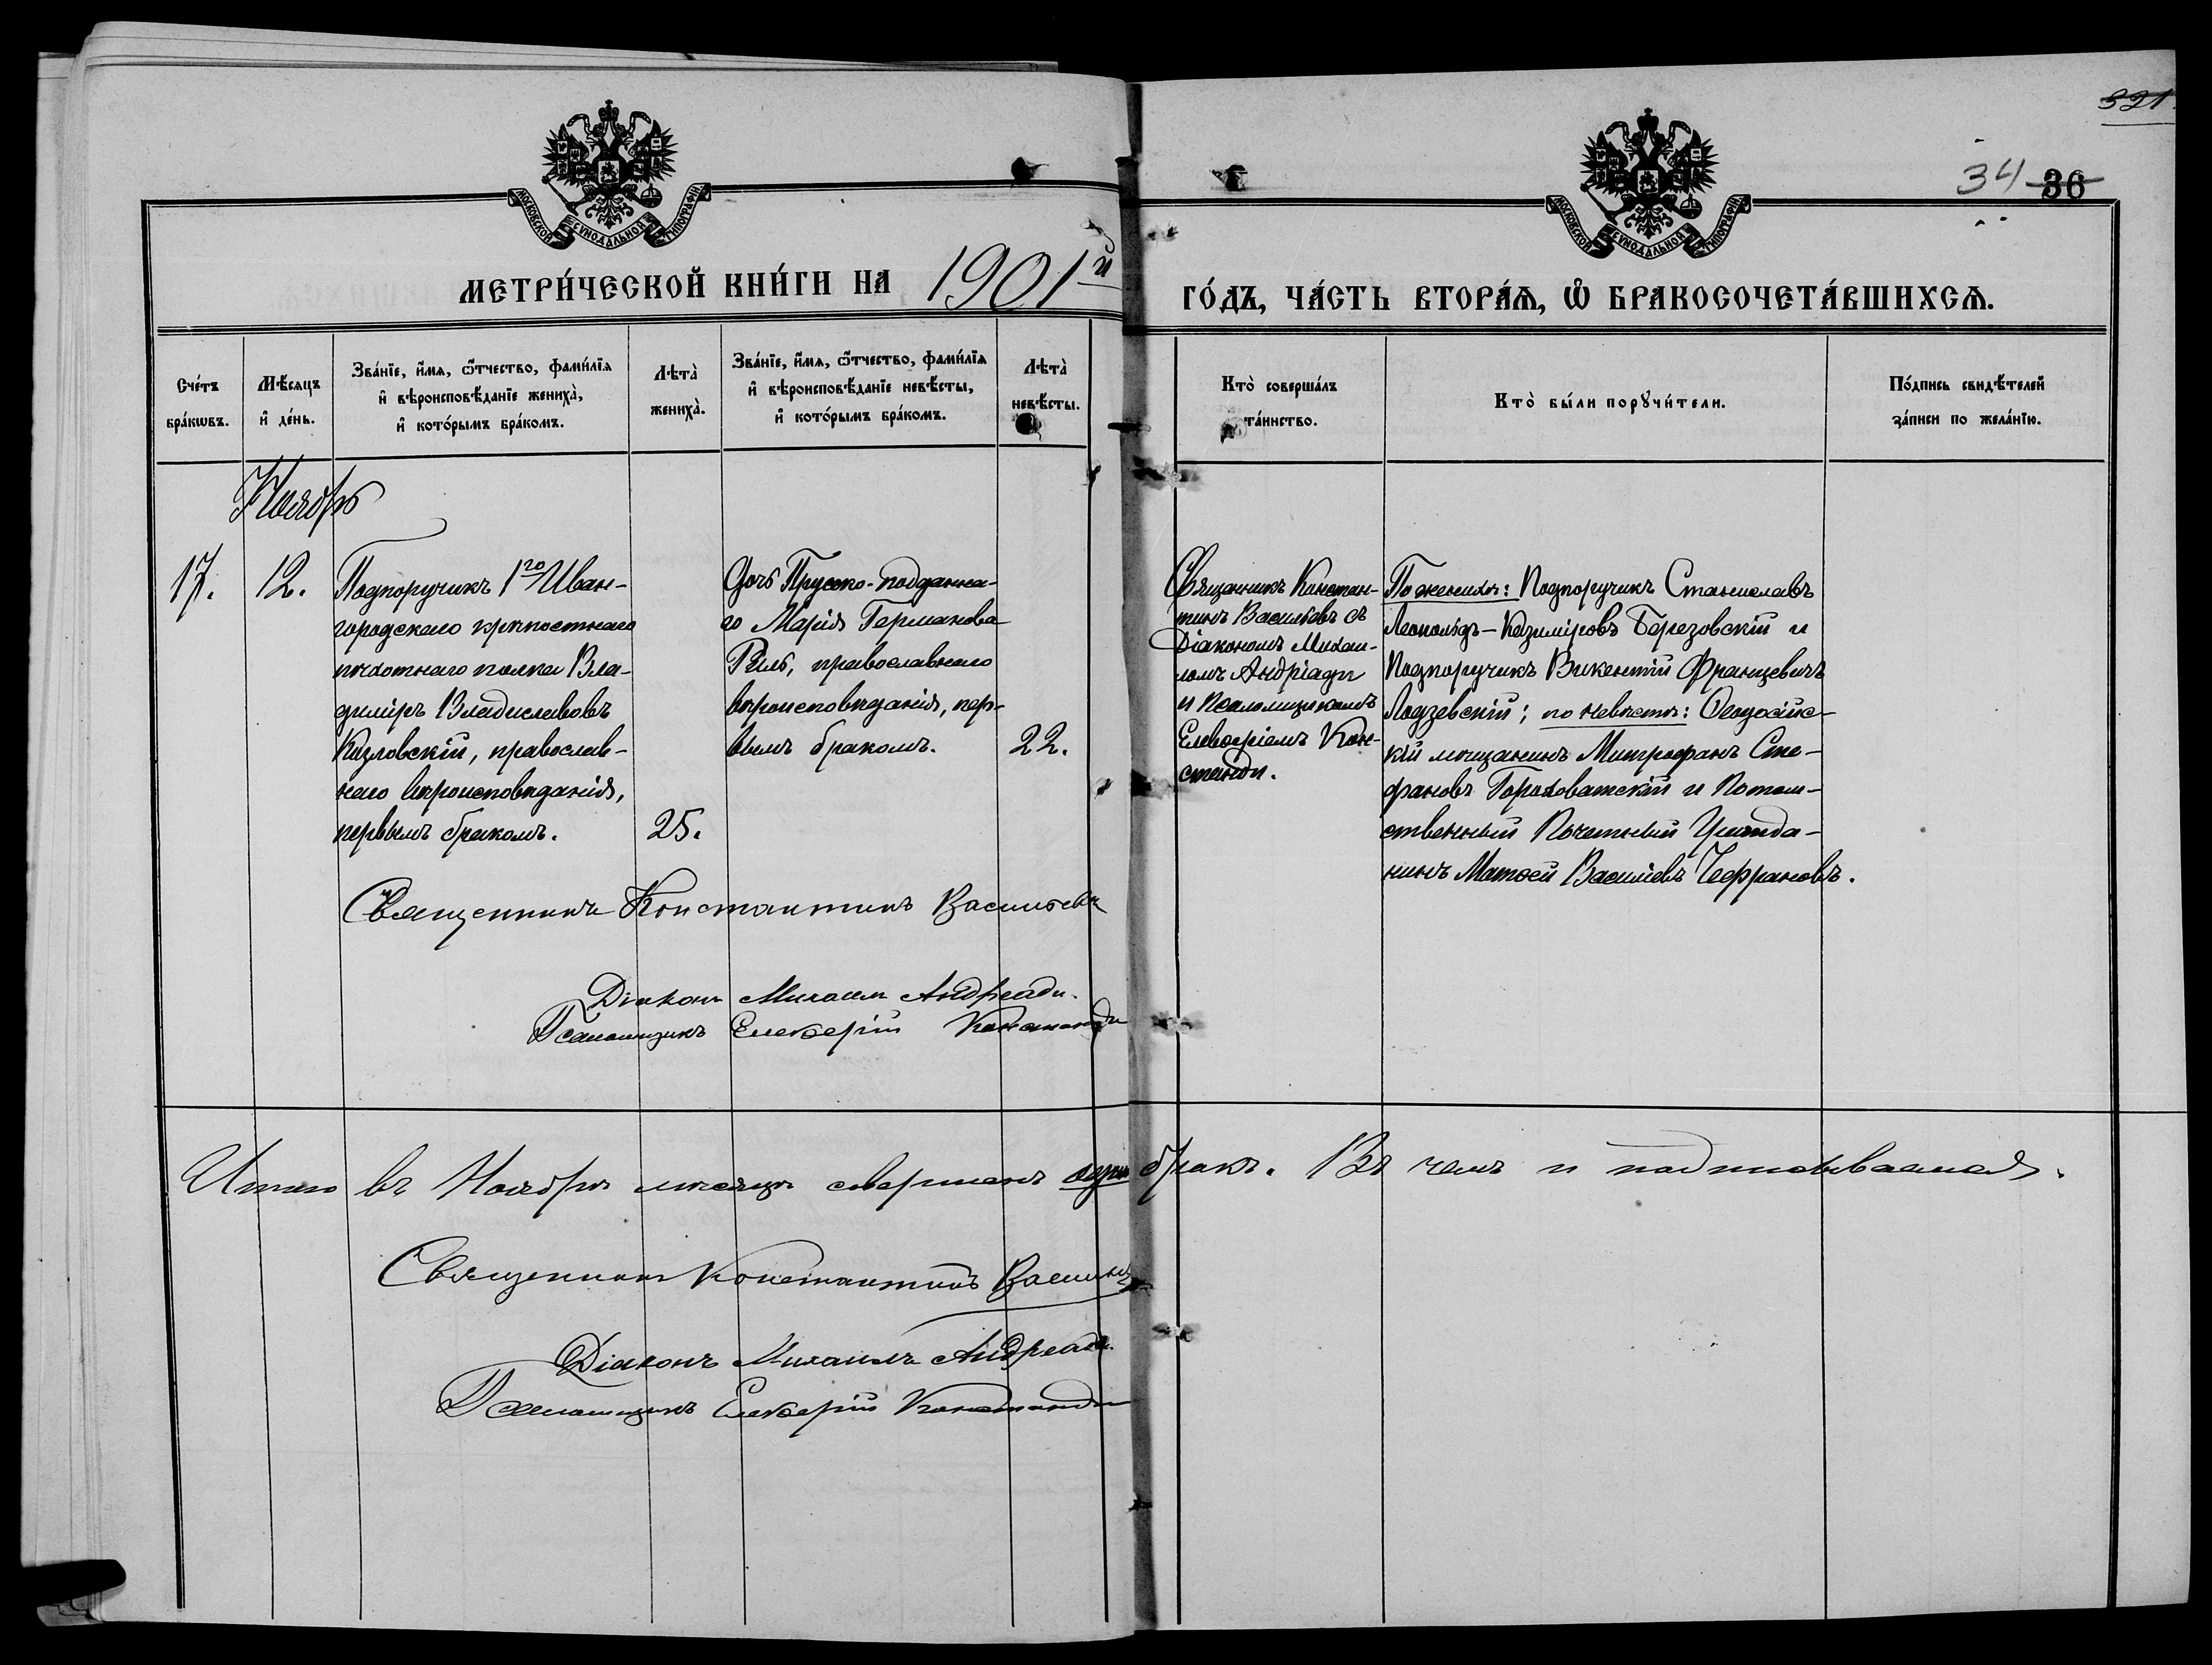 321.
34 36
МОСКОВСКОЙ СѴНОДАЛЬНОЙ ТИПОГРАФІИ
МОСКОВСКОЙ СѴНОДАЛЬНОЙ ТИПОГРАФІИ
МЕТРИ́ЧЕСКОЙ КНИ́ГИ НА 1901й
ГО́ДЪ, ЧА́СТЬ ВТОРА́Ѧ, Ѿ БРАКОСОЧЕТА́ВШИХСѦ.
Сче́тъ
бра́кѡвъ.
Мѣ́сяцъ
и҆ де́нь.
Зва́нїе, и҆́мя, ѻ҆́тчество, фами́лїя
и҆ вѣроисповѣ́данїе жениха̀,
и҆ кото́рымъ бра́комъ.
Лѣта̀
жениха̀.
Зва́нїе, и҆́мя, ѻ҆́тчество, фами́лїя
и҆ вѣроисповѣ́данїе невѣ́сты,
и҆ кото́рымъ бра́комъ.
Лѣта̀
невѣ́сты.
Кто̀ соверша́лъ
та́инство.
Кто̀ бы́ли порꙋчи́тели.
По́дпись свидѣ́телей
за́писи по жела́нїю.
Ноябрь
17.
12.
Подпоручикъ 1го Иван-
городскаго крѣпостнаго
пѣхотнаго полка Вла-
диміръ Владиславовъ
Козловскій, православ-
наго вѣроисповѣданія,
первымъ бракомъ.
25.
Дочь Прусско-подданна-
го Марія Германова
Рель, православнаго
вѣроисповѣданія, пер-
вымъ бракомъ.
22.
Священникъ Констан-
тинъ Васильевъ съ
Діакономъ Михаи-
ломъ Андріади
и Псаломщикомъ
Елевѳеріемъ Кон-
станди.
По женихѣ: Подпоручикъ Станиславъ
Леопольдъ-Казиміровъ Березовскій и
Подпоручикъ Викентій Францевичъ
Лодзевскій; по невѣстѣ: Ѳеодосійс-
кій мѣщанинъ Митрофанъ Сте-
фановъ Гороховатскій и Потом-
ственный Почетный Гражда-
нинъ Матѳей Василіевъ Чефрановъ.
Священникъ Константинъ Васильевъ
Діаконъ Михаилъ Андреади.
Псаломщикъ Елевѳерій Констанди
Итого въ Ноябрѣ мѣсяцѣ совершенъ одинъ бракъ. Въ чемъ и подписываемся.
Священникъ Константинъ Васильевъ
Діаконъ Михаилъ Андреади.
Псаломщикъ Елевѳерій Констанди